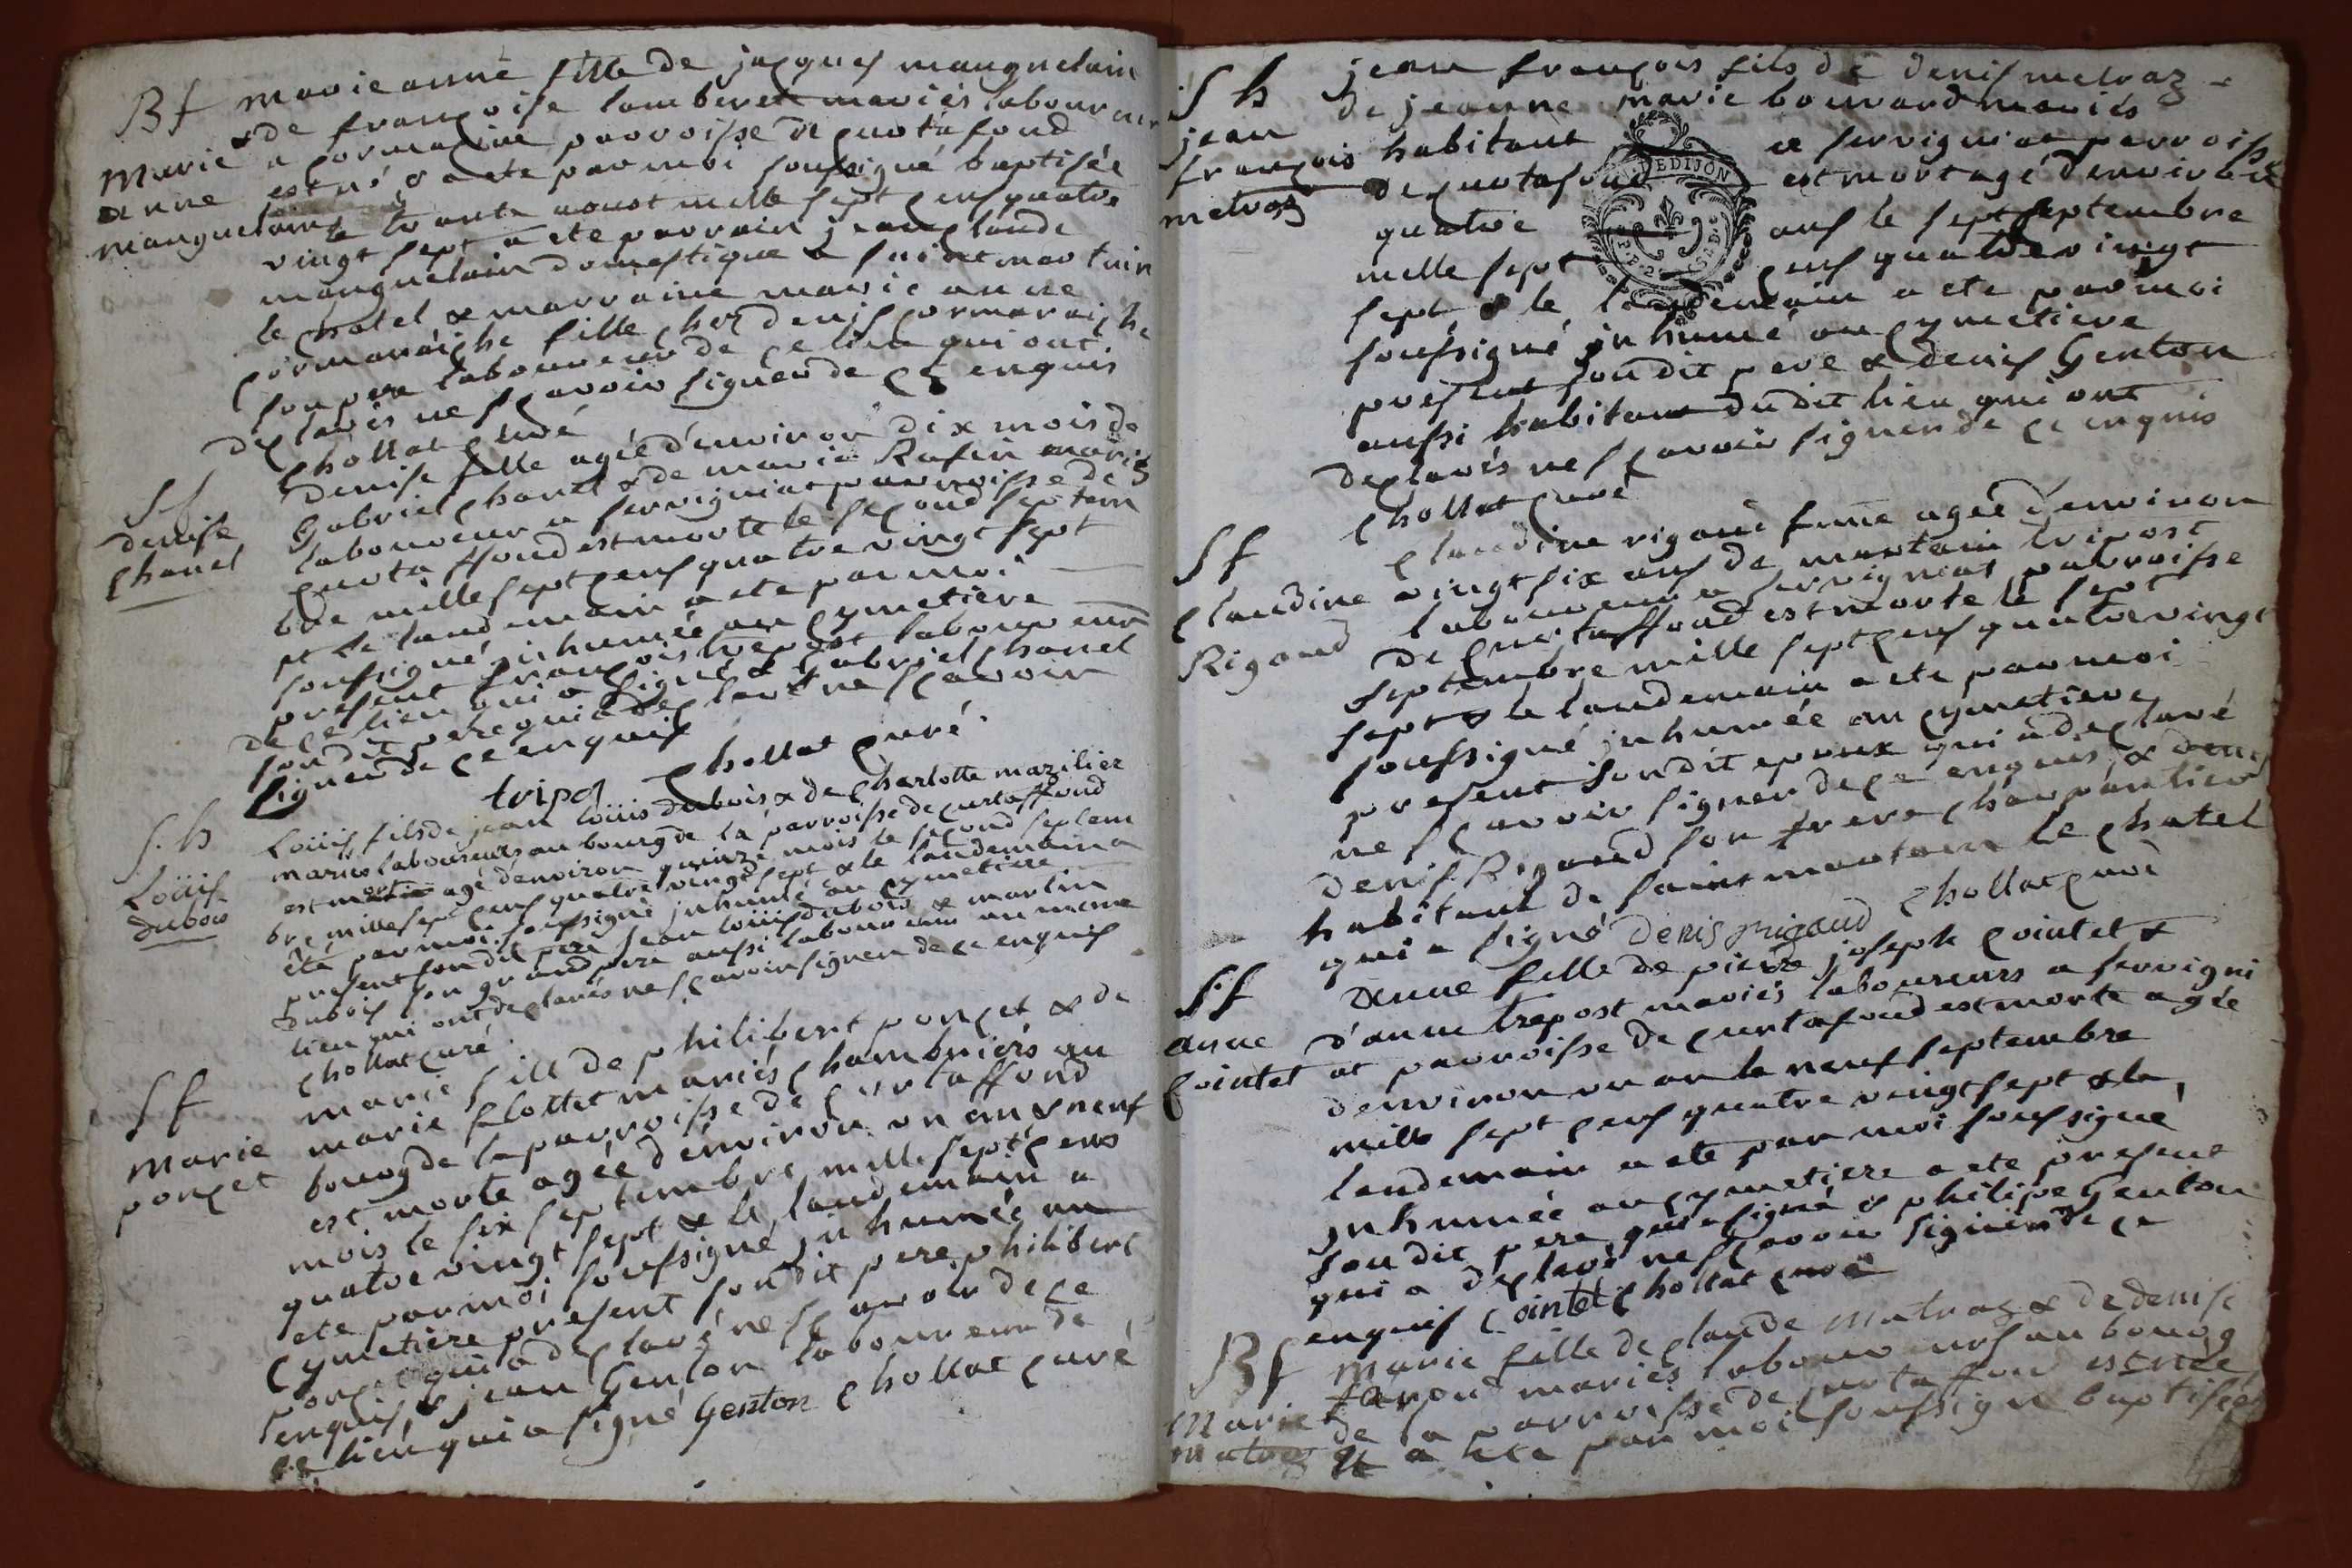 Bf marie anne fille de jacques mauguelain
& de françoise lamberet mariés laboureurs
Marie a Cormacine parroisse de curtafond
anne est né & a ete par moi soussigné baptisée
mauguelain le trante aoust mille sept cens quatre
vingt sept a ete parrain jean claude
mauguelain domestique a saint martain
le chatel & marraine marie anne
cormaraiche fille chez denis cormaraiche
son pere laboureur de ce lieu qui ont
declarés ne scavoir signer de ce enquis
chollat curé
Sf denise fille agée d'environ dix mois de
denise Gabriel chanel & de marie Rafin mariés
chanel laboureur a servigniat parroisse de
curtaffond est morte le second septem
bre mille sept cens quatre vingt sept
et le landemain a ete par moi
soussigné inhumée au cymetiere
present françois trepost laboureur
de ce lieu qui a signé & Gabriel chanel
son dit pere qui a declaré ne scavoir
signer de ce enquis
tripoz chollat curé
S.h Loüis fils de jean loüis dubois & de charlotte mazilier
Loüis mariés laboureurs au bourg de la parroisse de curtaffond
dubois est mort agé d'environ quinze mois le second septem
bre mille sept cens quatre vingt sept & le landemain a
été par moi soussigné inhumé au cymetiere
present son dit pere jean loüis dubois & martin
dubois son grand pere aussi laboureur au meme
lieu qui ont declarés ne scavoir signer de ce enquis
chollat curé
Sf marie fille de philibert ponçet & de
marie marie flottet mariés chambriers au
ponçet bourg de la parroisse de curtaffond
est morte agée d'environ un an & neuf
mois le six septembre mille sept cens
quatre vingt sept & le landemain a
ete par moi soussigné inhumée au
cymetiere present son dit pere philibert
ponçet qui a declaré ne scavoir de ce
enquis & jean Genton laboureur de
ce lieu qui a signé Genton chollat curé
Sh jean françois fils de denis metraz &
jean de jeanne marie bouvard mariés
françois habitant a servigniat parroisse
metraz de curtafond est mort agé d'environ
quatre ans le sept septembre
mille sept cens quatre vingt
sept & le landemain a ete par moi
soussigné inhumé au cymetiere
present son dit pere & denis Genton
aussi habitant du dit lieu qui ont
declarés ne scavoir signer de ce enquis
chollat curé
DEDIJON
Sf claudine rigaud fame agée d'environ
claudine vingt six ans de martain tripost
Rigaud laboureur a servigniat parroisse
de curtaffond est morte le sept
septembre mille sept cens quatre vingt
sept & le landemain a ete par moi
soussigné inhumée au cymetiere
present son dit epoux qui a declaré
ne scavoir signer de ce enquis &
denis Rigaud son frere charpantier
habitant de saint martain le chatel
qui a signé denis rigaud chollat curé
Sf anne fille de pierre joseph cointet &
anne d'anne trepost mariés laboureurs a servigni
cointet at parroisse de curtafond est morte agée
d'environ un an le neuf septembre
mille sept cens quatre vingt sept & le
landemain a ete par moi soussigné
inhumée au cymetiere a ete present
son dit pere qui a signé & philipe Genton
qui a declaré ne scavoir signer de ce
enquis cointet chollat curé
Bf Marie fille de claude matraz & de denise
marie mariés laboureurs au bourg
matraz de la parroisse de curtaffon est née
& a ete par moi soussigné baptisée